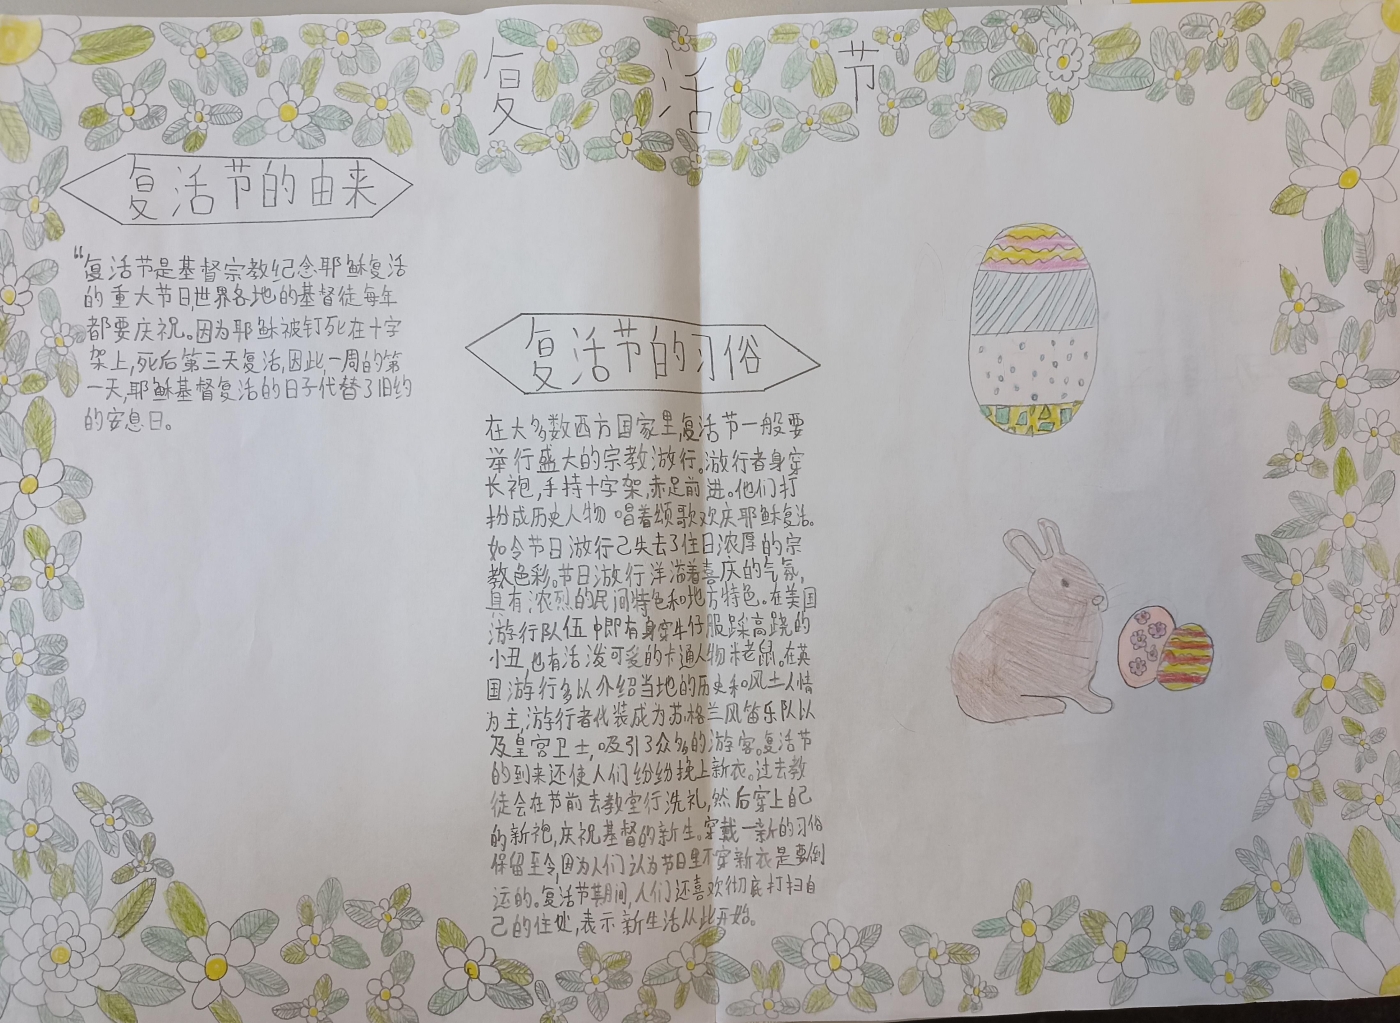 复活节
复活节的由来
“复活节是基督宗教纪念耶稣复活
的重大节日,世界各地的基督徒每年
都要庆祝。因为耶稣被钉死在十字
架上,死后第三天复活,因此,一周的第
一天,耶稣基督复活的日子代替了旧约
的安息日。
复活节的习俗
在大多数西方国家里,复活节一般要
举行盛大的宗教游行。游行者身穿
长袍,手持十字架,赤足前进。他们打
扮成历史人物唱着颂歌欢庆耶稣复活。
如今节日游行已失去了往日浓厚的宗
教色彩。节日游行洋溢着喜庆的气氛,
具有浓烈的民间特色和地方特色。在美国
游行队伍中即有身穿牛仔服踩高跷的
小丑,也有活泼可爱的卡通人物米老鼠。在英
国游行多以介绍当地的历史和风土人情
为主,游行者化装成为苏格兰风笛乐队以
及皇宫卫士,吸引了众多的游客。复活节
的到来还使人们纷纷换上新衣。过去教
徒会在节前去教堂行洗礼,然后穿上自己
的新袍,庆祝基督的新生。穿戴一新的习俗
保留至今,因为人们认为节日里不穿新衣是要倒
运的。复活节期间,人们还喜欢彻底打扫自
己的住处,表示新生活从此开始。